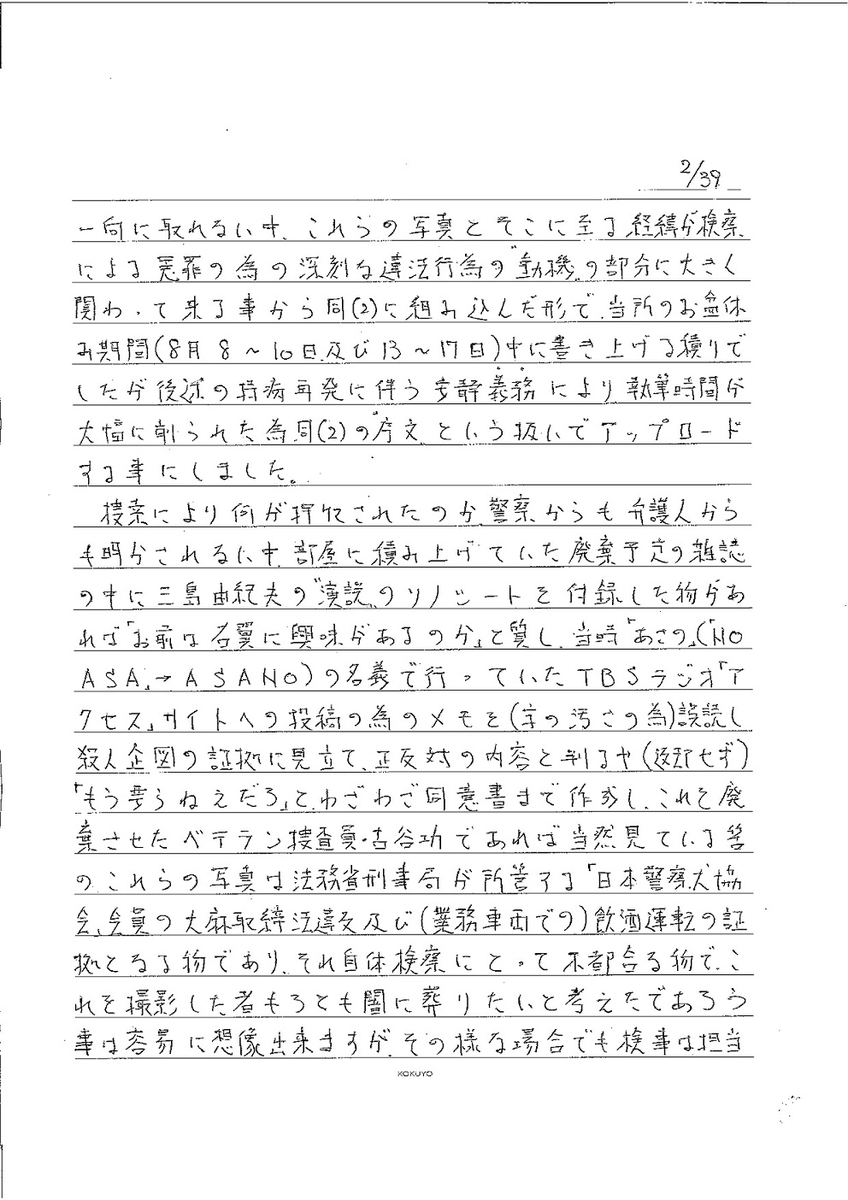 2/39
一向に取れない中、これらの写真とそこに至る経緯が検察
による冤罪の為の深刻な違法行為の"動機"の部分に大きく
関わって来る事から同(2)に組み込んだ形で、当所のお盆休
み期間(8月8～10日及び13～17日)中に書き上げる積りで
したが後述の持病再発に伴う安静義務により執筆時間が
大幅に削られた為同(2)の"序文"という扱いでアップロード
する事にしました。
捜索により何が押収されたのか、警察からも弁護人から
も明かされない中、部屋に積み上げていた廃棄予定の雑誌
の中に三島由紀夫の"演説"のソノシートを付録した物があ
れば「お前は右翼に興味があるのか」と質し、当時「あさの」(「NO
ASA」→ASANO)の名義で行っていたTBSラジオ「ア
クセス」サイトへの投稿の為のメモを(字の汚さの為)誤読し
殺人企図の証拠に見立て、正反対の内容と判るや(返却せず)
「もう要らねえだろ」と、わざわざ同意書まで作成し、これを廃
棄させたベテラン捜査員・古谷功であれば当然見ている筈
の、これらの写真は法務省刑事局が所管する「日本警察犬協
会」会員の大麻取締法違反及び(業務車両での)飲酒運転の証
拠となる物であり、それ自体検察にとって不都合な物で、こ
れを撮影した者もろとも闇に葬りたいと考えたであろう
事は容易に想像出来ますが、その様な場合でも検事は担当
KOKUYO